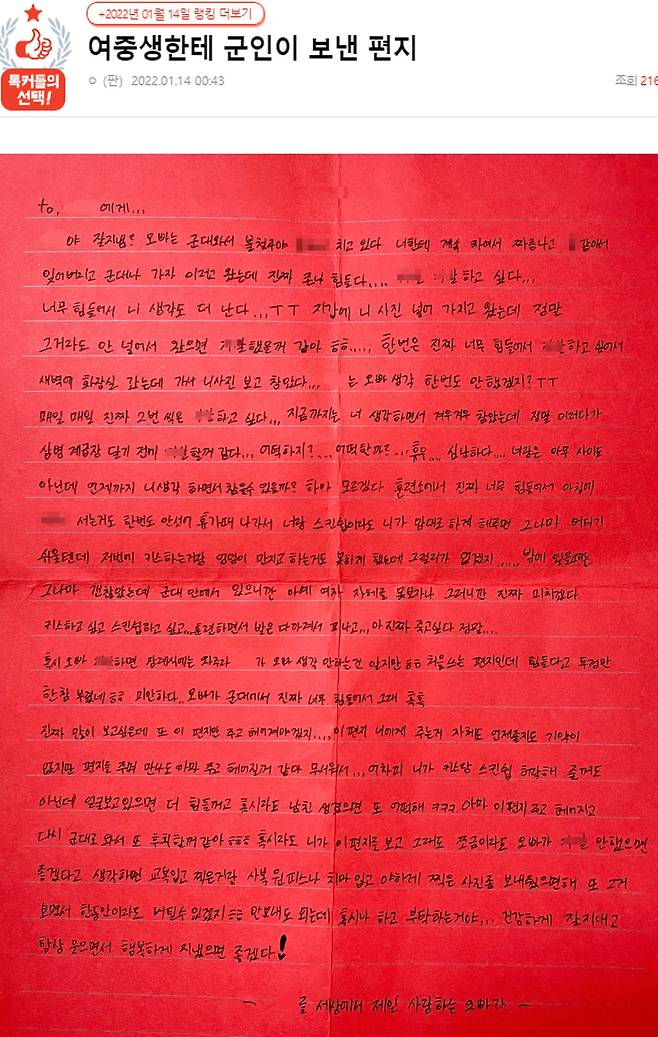 +2022년 01월 14일 랭킹 더보기
여중생한테 군인이 보낸 편지
톡커들의
선택!
ㅇ (판) 2022.01.14 00:43
조회 216
to, 에게...
야 잘지냄? 오빠는 군대와서 불철주야 치고 있다 너한테 계속 차여서 짜증나고 같아서
잊어버리고 군대나 가자 이러고 왔는데 진짜 존나 힘들다.... 하고 싶다...
너무 힘들어서 니 생각도 더 난다...ㅜㅜ 지갑에 니 사진 넣어 가지고 왔는데 정말
그거라도 안 넣어서 왔으면 했을꺼 같아 ㅎㅎ.... 한번은 진짜 너무 힘들어서 하고 싶어서
새벽에 화장실 갔는데 가서 니사진 보고 참았다... 는 오빠생각 한번도 안했겠지?ㅜㅜ
매일 매일 진짜 2번 씩은 하고 싶다... 지금까지는 너 생각하면서 겨우겨우 참았는데 정말 이러다가
상병 계급장 달기 전에 할꺼 같다... 어떡하지?... 어떡할까?... 휴우... 심난하다.... 너랑은 아무 사이도
아닌데 언제까지 니생각 하면서 참을수 있을까? 하아 모르겠다 훈련소에서 진짜 너무 힘들어서 아침에
서는거도 한번도 안섰어 휴가때 나가서 너랑 스킨쉽이라도 니가 맘대로 하게 해주면 그나마 버티기
쉬울텐데 저번에 키스하는거랑 엉덩이 만지고 하는거도 못하게 했는데 그럴리가 없겠지..... 밖에 있을때는
그나마 괜찮았는데 군대 안에서 있으니깐 아예 여자 자체를 못보자나 그러니깐 진짜 미치겠다
키스하고 싶고 스킨쉽하고 싶고... 훈련하면서 발은 다까져서 피나고... 아 진짜 죽고싶다 정말....
혹시 오빠 하면 장례식에는 와주라 가 오빠 생각 안하는건 알지만 ㅎㅎ 처음쓰는 편지인데 힘들다고 투정만
한참 부렸네 ㅎㅎ 미안하다.. 오빠가 군대에서 진짜 너무 힘들어서 그래 흑흑
진짜 많이 보고싶은데 또 이 편지만 주고 헤어져야겠지.... 이 편지 너에게 주는거 자체도 언제올지도 기약이
없지만 편지를 주며 만나도 아마 주고 헤어질꺼 같다 무서워서... 어차피 니가 키스랑 스킨쉽 허락해 줄꺼도
아닌데 얼굴보고있으면 더 힘들꺼고 혹시라도 남친 생겼으면 또 어떡해 ㅋㅋㅋ 아마 이편지주고 헤어지고
다시 군대로 와서 또 후회할꺼같아 ㅎㅎㅎ 혹시라도 니가 이편지를 보고 그래도 쪼금이라도 오빠가 안했으면
좋겠다고 생각하면 교복입고 찍은거랑 사복 원피스나 치마 입고 야하게 찍은 사진좀 보내줬으면해 또 그거
보면서 한동안이라도 버틸수 있겠지 ㅎㅎ 안보내도 되는데 혹시나 하고 부탁하는거야... 건강하게 잘지내고
항상 웃으면서 행복하게 지냈으면 좋겠다!
- 를 세상에서 제일 사랑하는 오빠가 -